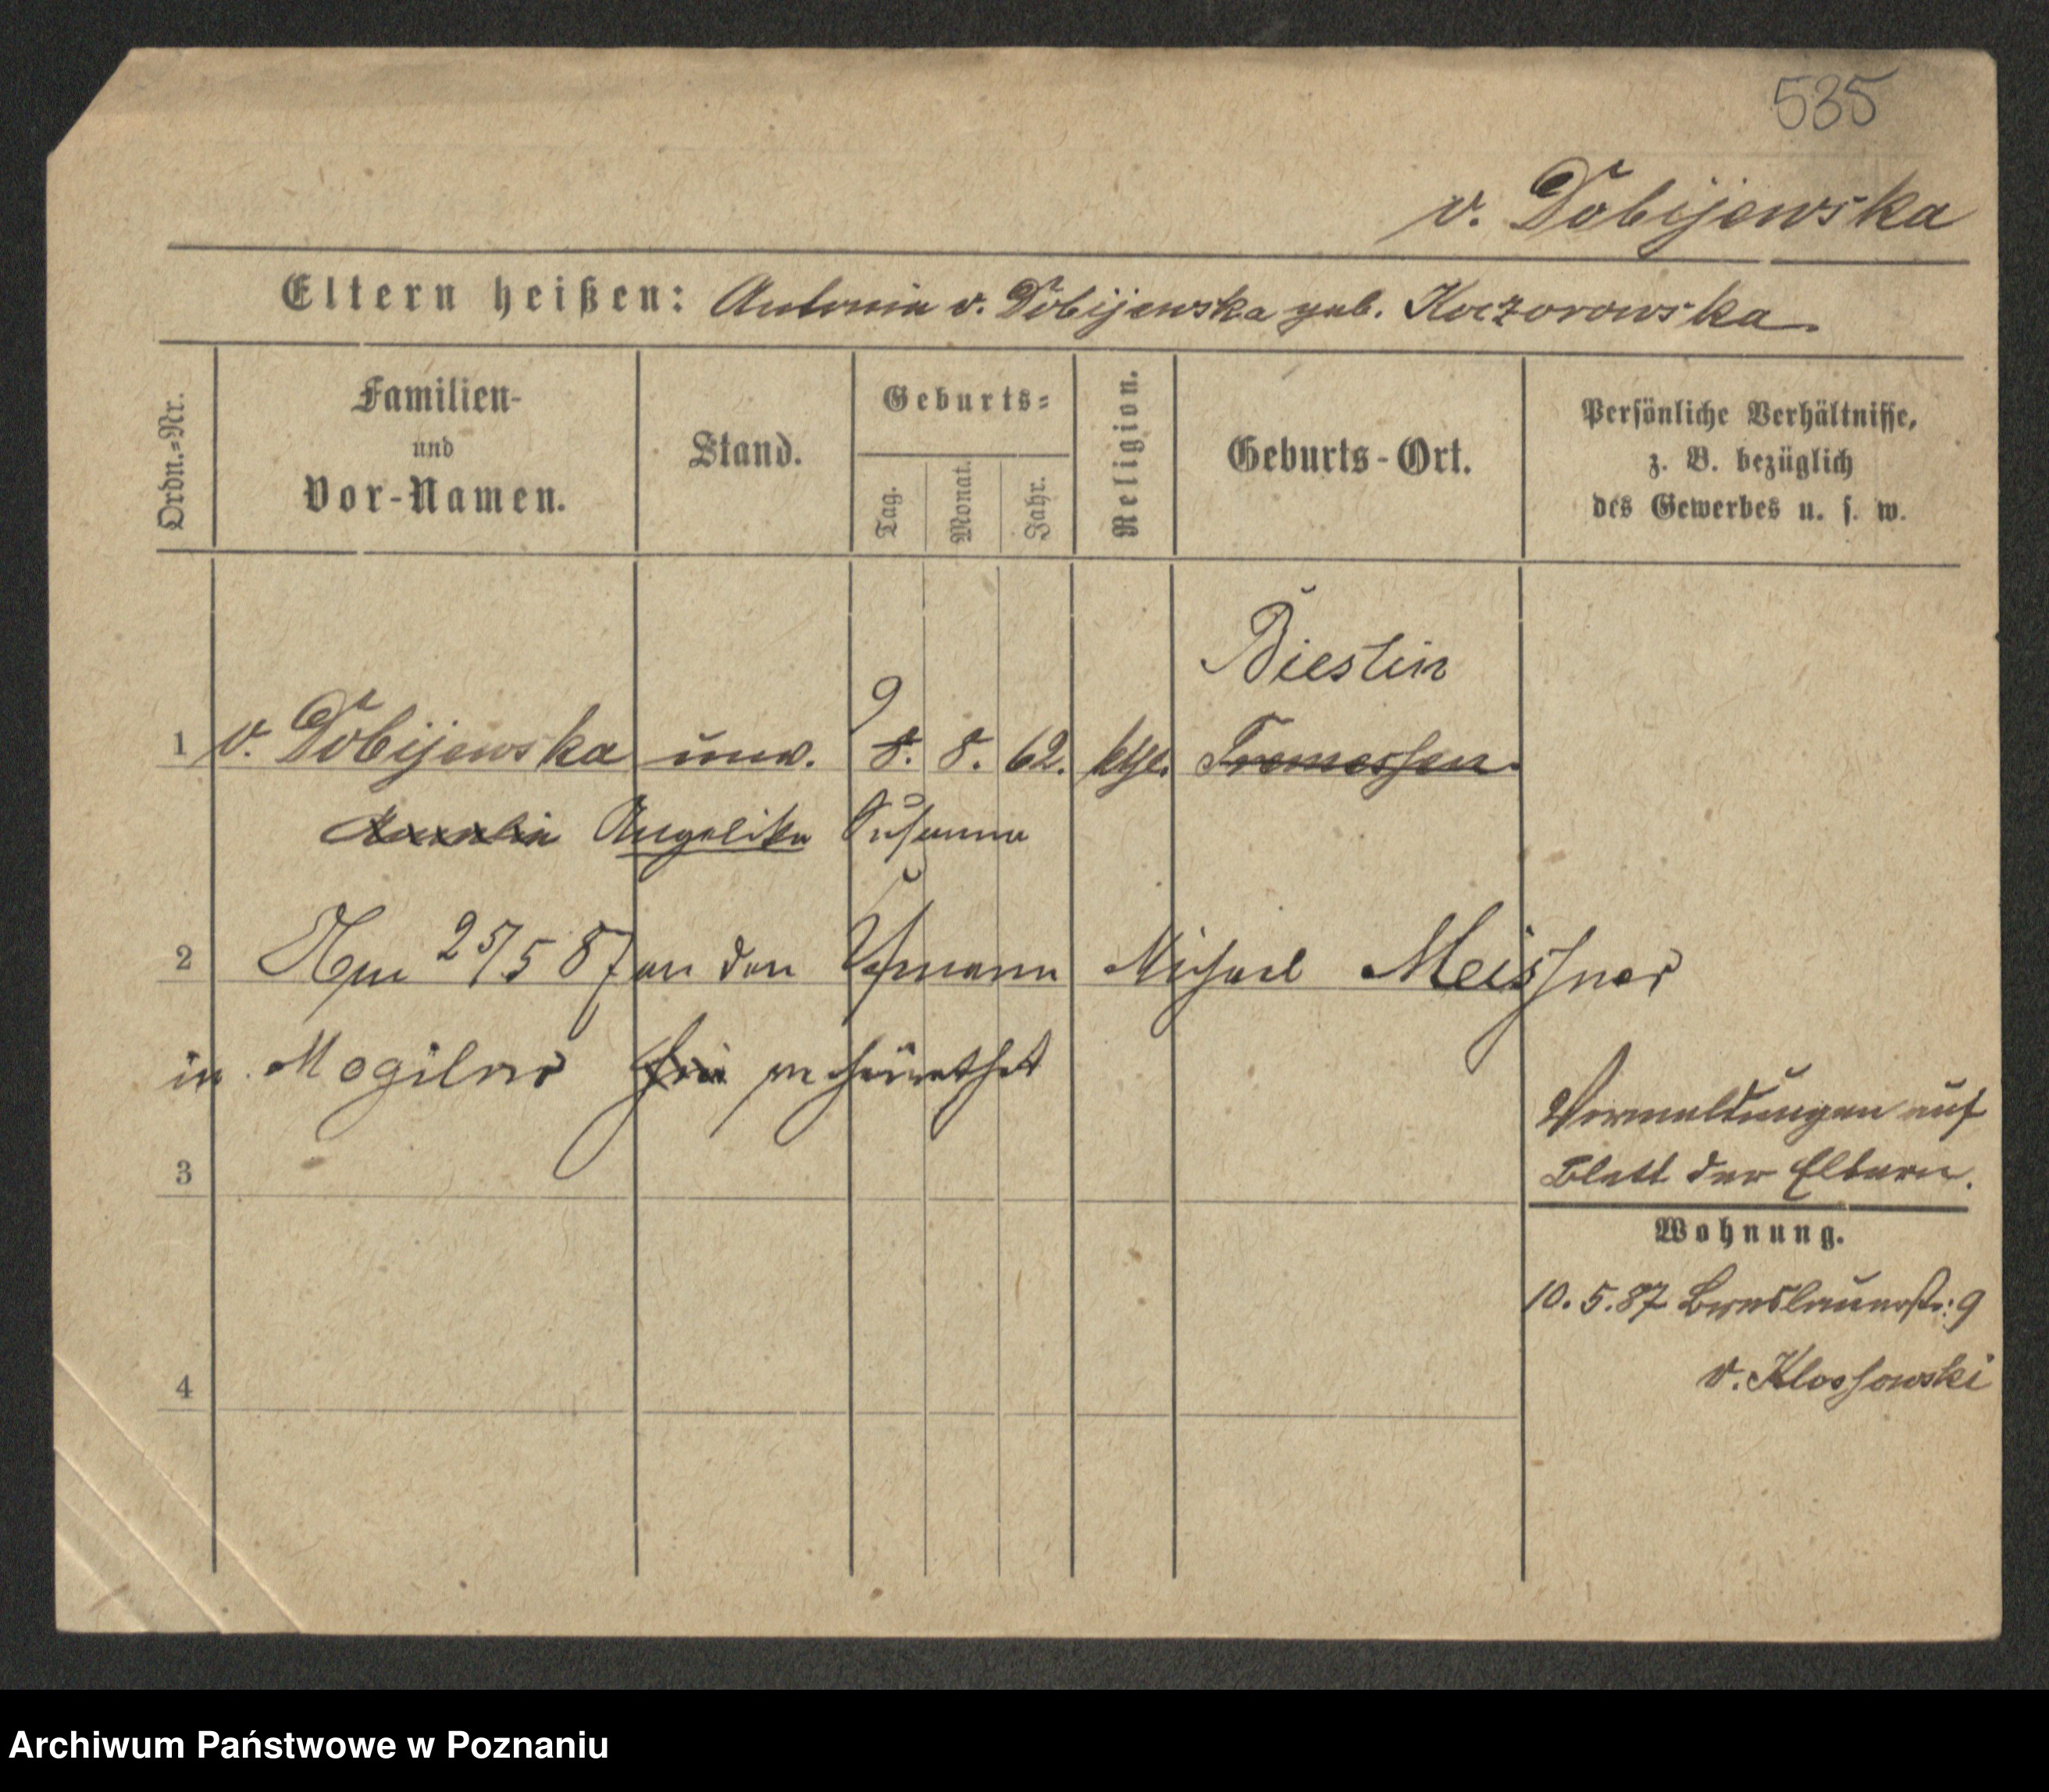 535
v. Dobijewska
Eltern heißen: Antonia v. Dobijewska geb. Koczorowska.
Ordn.=Nr.
Familien-
und
Vor-Namen.
Stand.
Geburts=
Tag.
Monat.
Jahr.
Religion.
Geburts-Ort.
Persönliche Verhältnisse,
z. B. bezüglich
des Gewerbes u. s. w.
Biestin
9
1 v. Dobijewska unv. 8. 8. 62. kth. Tremessen.
Angelika Susanna
2 Am 25/5 87 an den Michael Meissner
in Mogilno verheirathet
Vermeldungen auf
Blatt der Eltern.
3
Wohnung.
10. 5. 87 Breslauerstr: 9
v. Klossowski
4
Archiwum Państwowe w Poznaniu